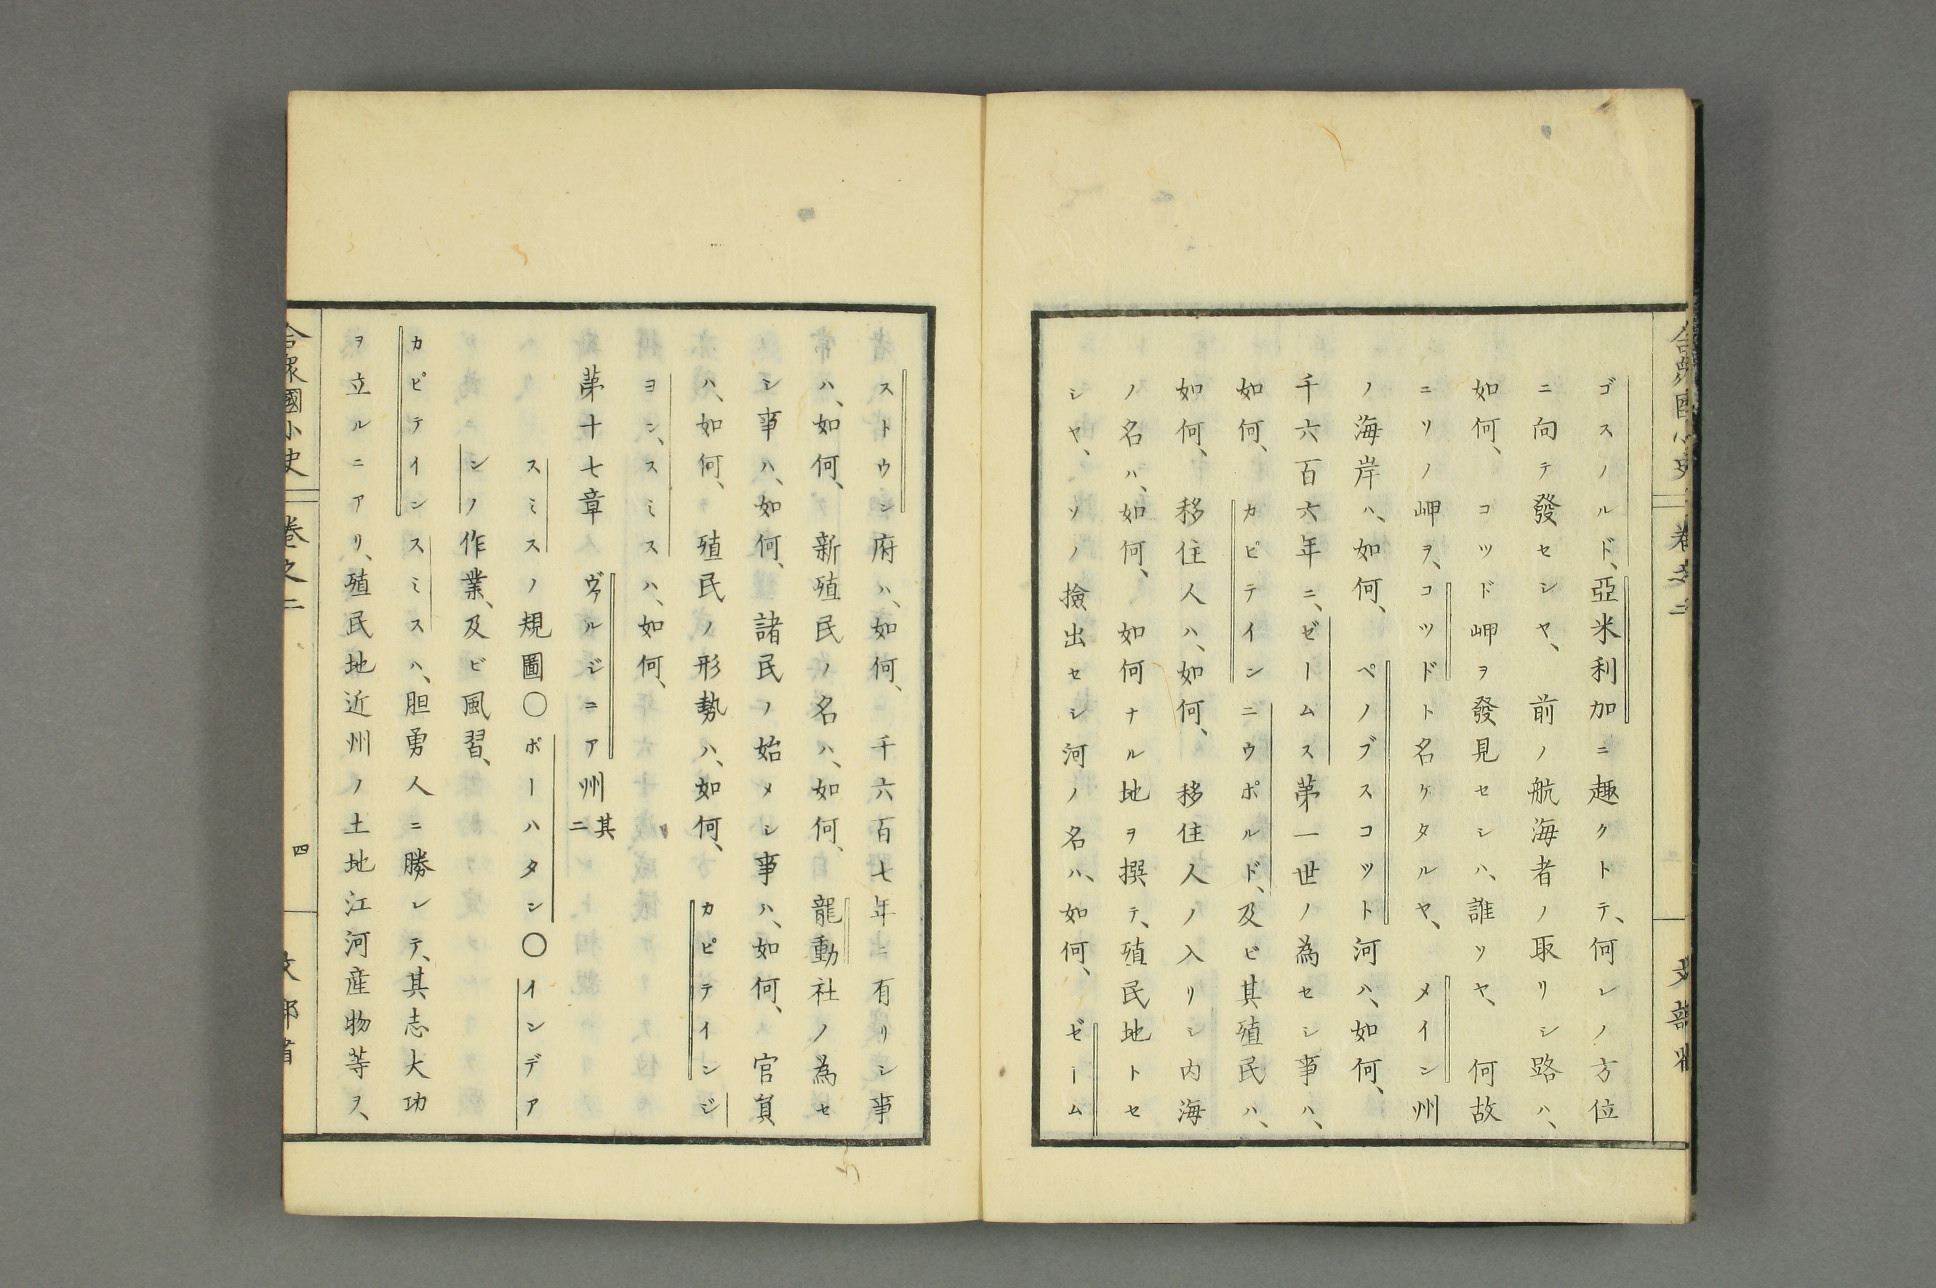 ゴスノルド、亞米利加ニ趣クトテ、何レノ方位
ニ向テ發セシヤ、前ノ航海者ノ取リシ路ハ、
如何、コツド岬ヲ發見セシハ、誰ソヤ、何故
ニソノ岬ヲ、コツドト名ケタルヤ、メイン州
ノ海岸ハ、如何、ペノブスコツト河ハ、如何、
千六百六年ニ、ゼームス第一世ノ為セシ事ハ、
如何、カピテインニウポルド、及ビ其殖民ハ、
如何、移住人ハ、如何、移住人ノ入リシ内海
ノ名ハ、如何、如何ナル地ヲ撰テ、殖民地トセ
シヤ、ソノ撿出セシ河ノ名ハ、如何、ゼーム
ストウン府ハ、如何、千六百七年ニ有リシ事
ハ、如何、新殖民ノ名ハ、如何、龍動社ノ為セ
シ事ハ、如何、諸民ノ始メシ事ハ、如何、官員
ハ、如何、殖民ノ形勢ハ、如何、カピテインジ
ヨン、スミスハ、如何、
第十七章 ヴァルジニア州其二
スミスノ規圖〇ポーハタン〇インデア
ンノ作業、及ビ風習、
カピテインスミスハ、胆勇人ニ勝レテ、其志大功
ヲ立ルニアリ、殖民地近州ノ土地江河産物等ヲ、
合衆國小史 卷之二
四
文部省